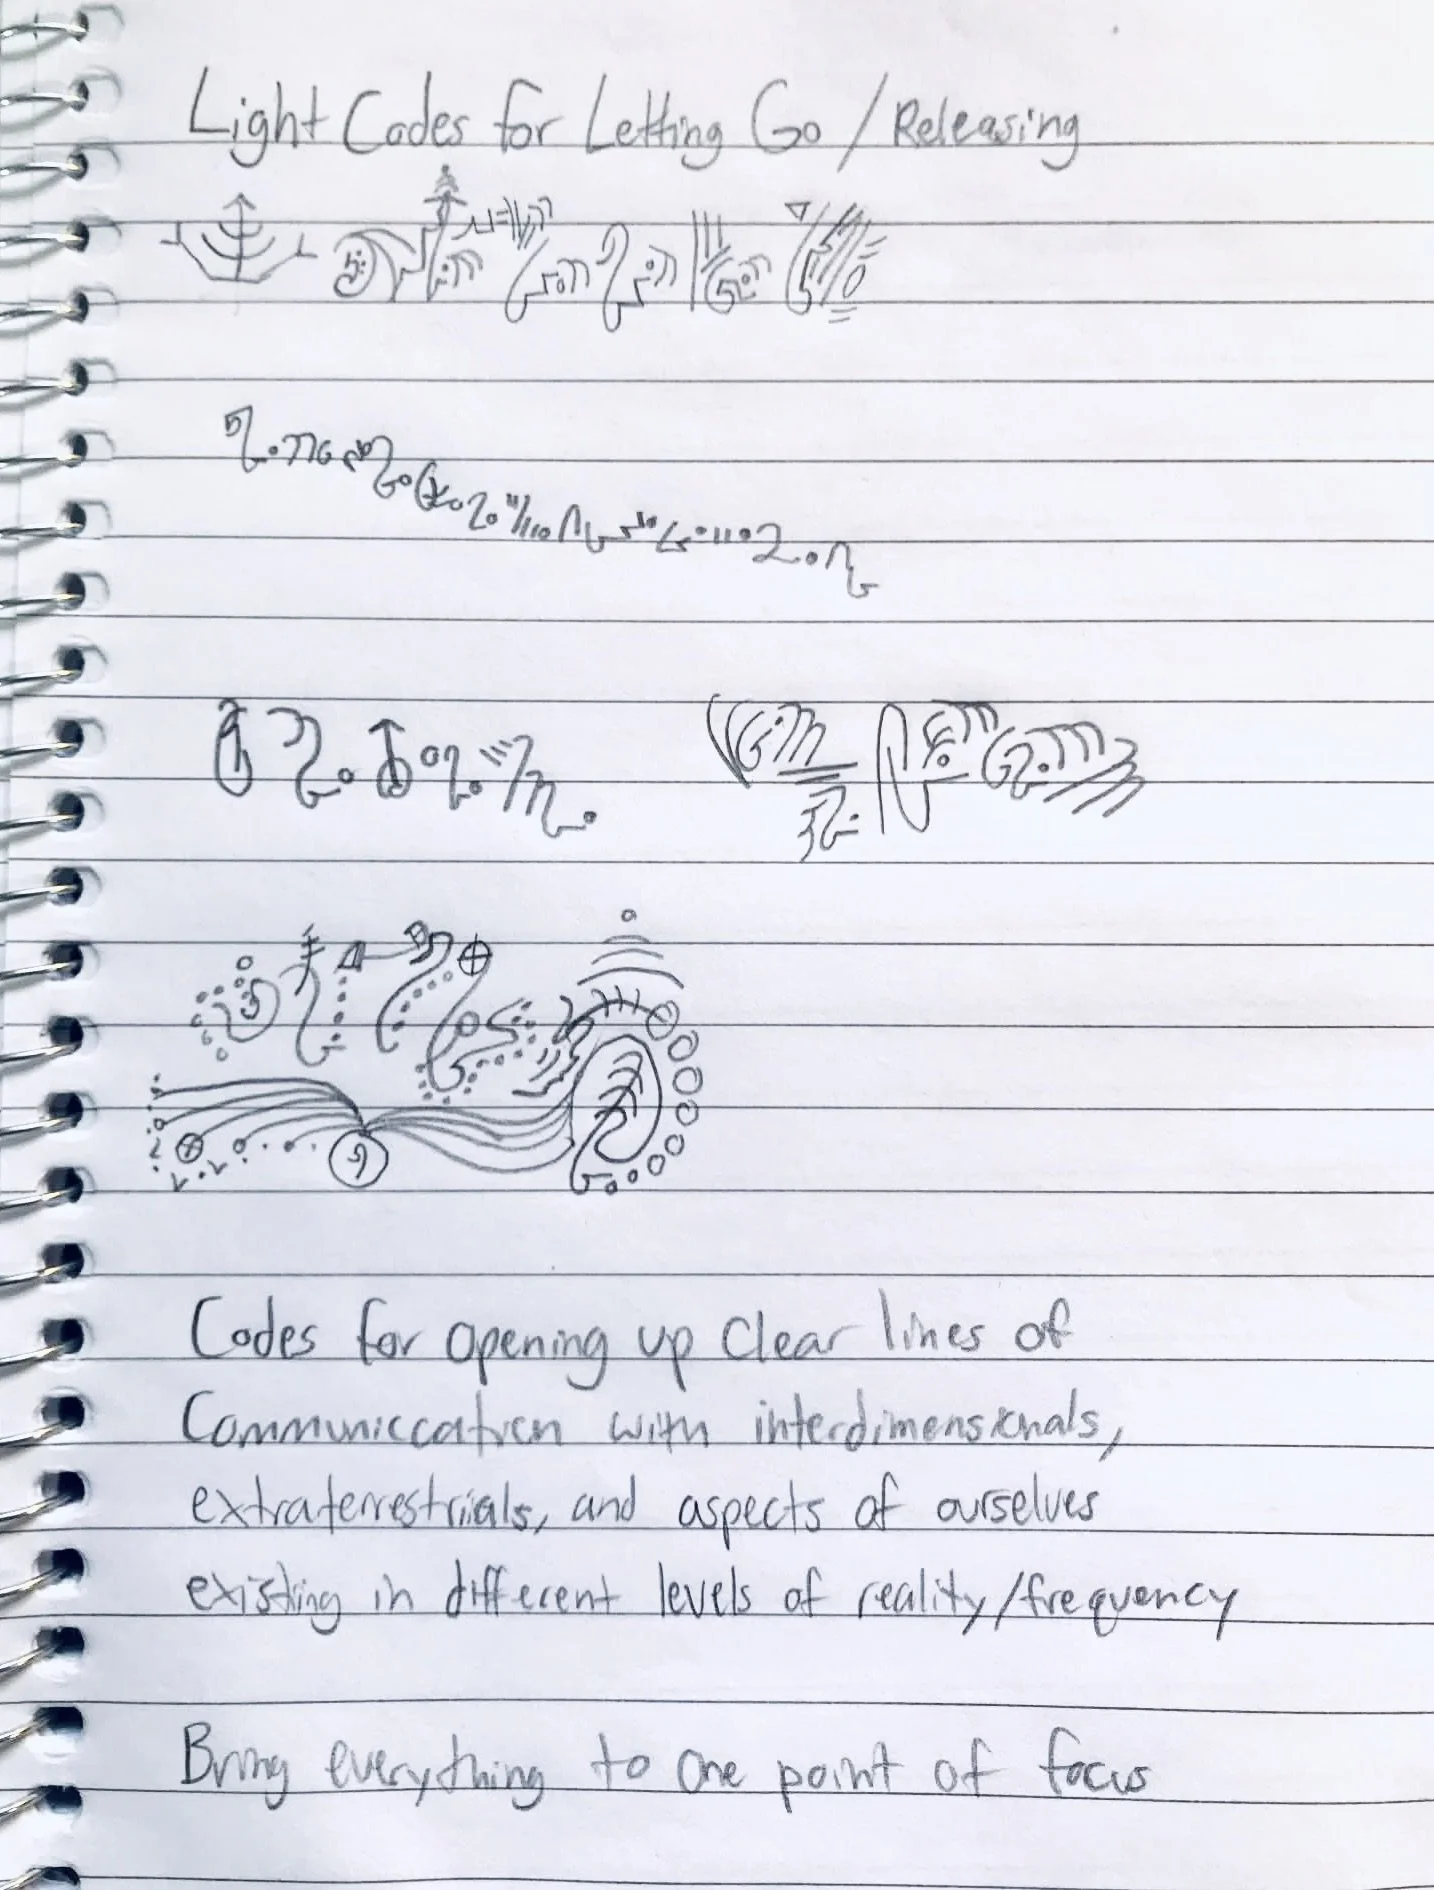 Light Codes for Letting Go / Releasing
Codes for opening up clear lines of
Communiccation with interdimensionals,
extraterrestrials, and aspects of ourselves
existing in different levels of reality/frequency
Bring everything to one point of focus